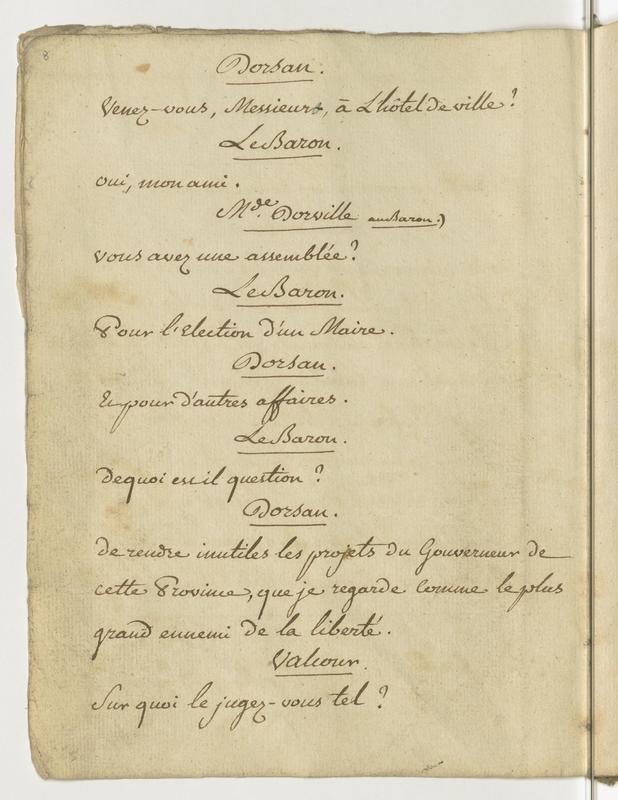 8
Dorsan.
Venez-vous, Messieurs, à L'hôtel de ville?
Le Baron.
oui, mon ami.
Mde. Dorville au Baron.)
vous avez une assemblée?
Le Baron.
Pour l'Election d'un Maire.
Dorsan.
Et pour d'autres affaires.
Le Baron.
Dequoi est il question?
Dorsan.
de rendre inutiles les projets du Gouverneur de
cette Province, que je regarde comme le plus
grand ennemi de la liberté.
Valcour.
Sur quoi le jugez-vous tel?